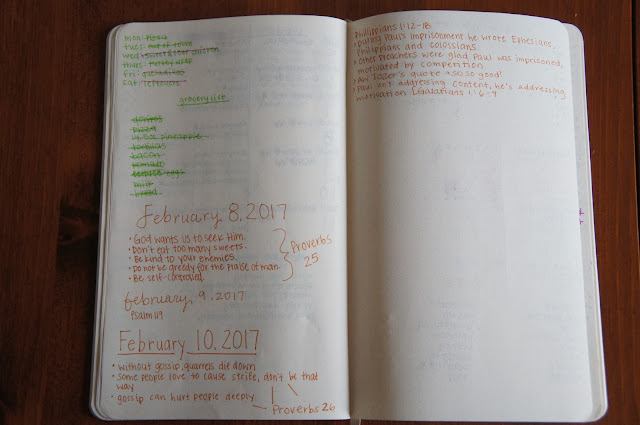 mon: pizza
tues: out of town
wed: sweet & sour chicken
thurs: turkey wrap
fri: quesadillas
sat: leftovers
grocery list
doritos
pizza
pineapple
tortillas
bacon
tomato
milk
bread
February 8, 2017
• God wants us to seek Him.
• Don't eat too many sweets.
• Be kind to your enemies.
• Do not be greedy for the praise of man.
• Be self-controlled.
Proverbs
25
february, 9, 2017
Psalm 119
February 10, 2017
• without gossip, quarrels die down
• some people love to cause strife, don't be that
way
• gossip can hurt people deeply
Proverbs 26
Philippians 1:12-18
• During Paul's imprisonment he wrote Ephesians,
Philippians and Colossians.
• Other preachers were glad Paul was imprisoned,
motivated by competition
quote → so so good!
• Paul isn't addressing content, he's addressing
motivation Galatians 1:6-9